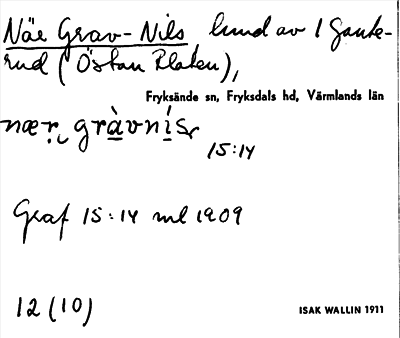 När Grav-Nils lund av 1 Gunke-
rud (Östan Platen),
Fryksände sn, Fryksdals hd, Värmlands län
nær gràvnís
15:14
Graf 15:14 ml 1909
12 (10)
ISAK WALLIN 1911